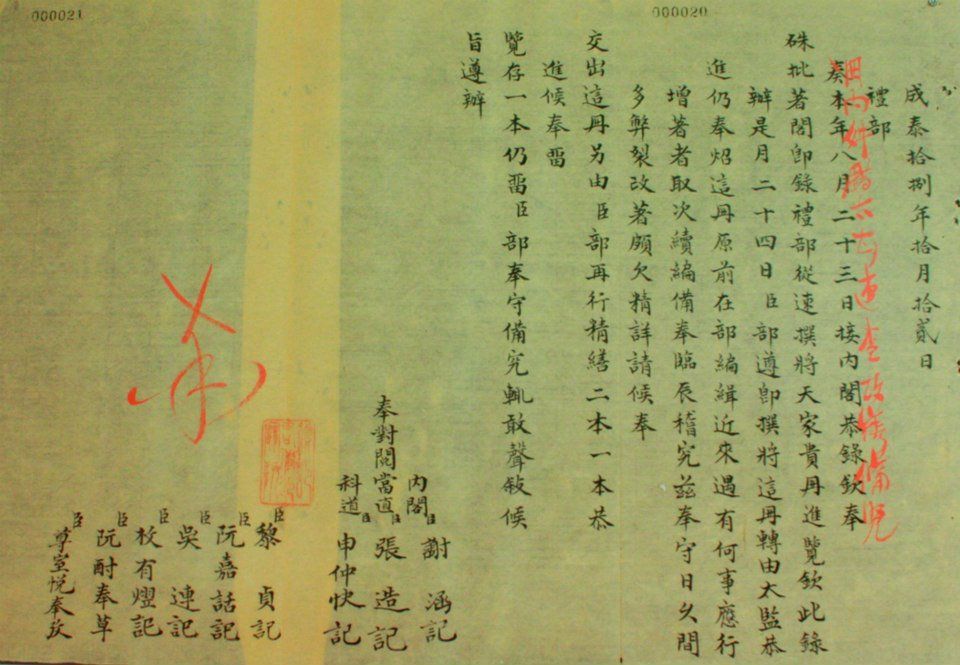 000021
000020
成泰拾捌年拾月拾貳日
禮部
奏本年八月二十三日接内閣恭錄欽奉
硃批著閣即錄禮部從速撰將天家貴冊進覽欽此錄
辦是月二十四日臣部遵即撰將這冊轉由太監恭
進仍奉炤這冊原前在部編緝近來遇有何事應行
增著者取次續編備奉臨辰稽究茲奉守日久間
多弊裂改著頗欠精詳請候奉
交出這冊另由臣部再行精繕二本一本恭
進候奉畱
覽存一本仍畱臣部奉守備究輒敢聲敍候
旨遵辦
奉對閱當直
内閣臣謝 涵記
臣張 造記
科道臣申仲怏記
臣黎 貞記
臣阮嘉話記
臣吳 連記
臣枚有熤記
臣阮酎奉草
臣尊室悅奉攷